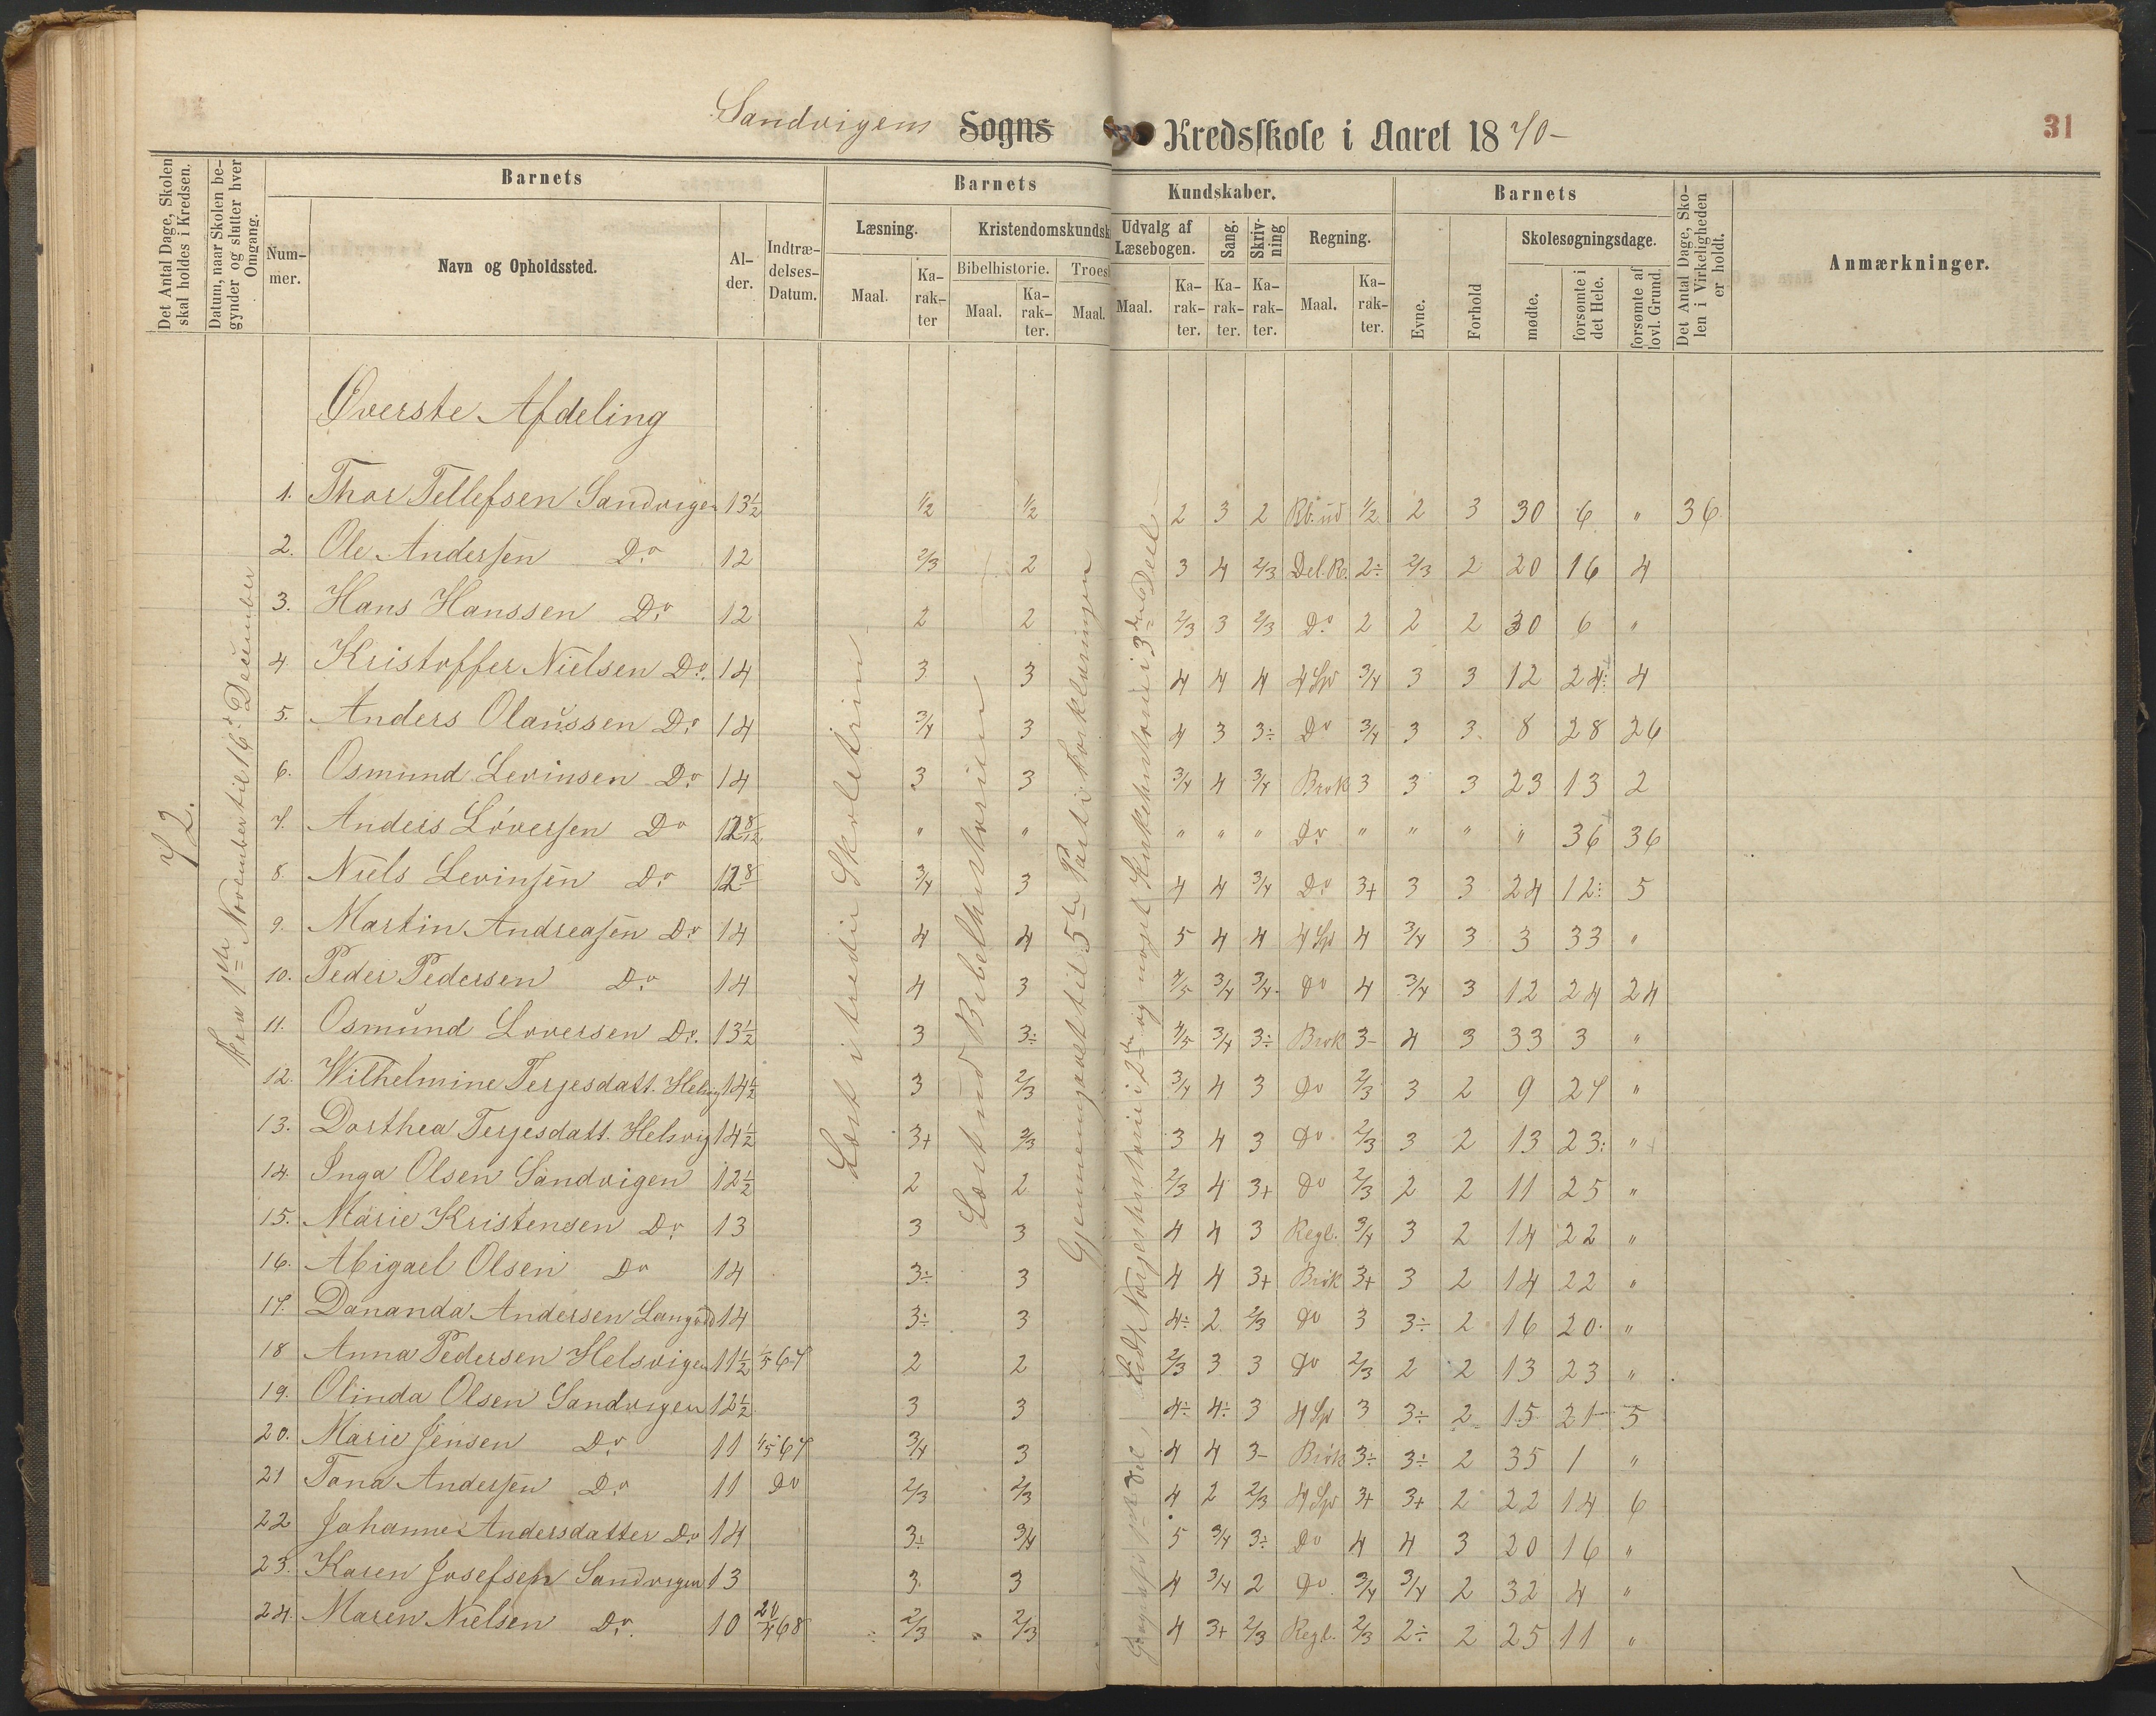 Sandvigens Sogns Kredsskole i Aaret 1870-
31
Det Antal Dage, Skolen skal holdes i Kredsen.
Datum, naar Skolen begynder og slutter hver Omgang.
Barnets
Nummer.
Navn og Opholdssted.
Alder.
Indtrædelses-Datum.
Barnets Kundskaber.
Læsning.
Maal.
Karakter
Kristendomskundsk
Bibelhistorie.
Maal.
Karakter.
Troes
Maal.
Udvalg af Læsebogen.
Maal.
Karakter.
Sang.
Karakter.
Skrivning
Karakter.
Regning.
Maal.
Karakter.
Barnets
Evne.
Forhold
Skolesøgningsdage.
mødte.
forsømte i det Hele.
forsømte af lovl. Grund.
Det Antal Dage, Skolen i Virkeligheden er holdt.
Anmærkninger.
72.
Fra 1ste November til 16de December
Læst i tredie Skoletrin
Læst ud Bibelhistorien
Gjennemgaaet til 5te Part i Forklaringen
Øverste Afdeling
1. Thor Tellefsen Sandvigen 13½ 1/2 1/2 2 3 2 Rb. ud 1/2 2 3 30 6 " 36
2. Ole Andersen Do 12 2/3 2 3 4 2/3 Del.R. 2÷ 2/3 2 20 16 4
3. Hans Hanssen Do 12 2 2 2/3 3 2/3 Do 2 2 2 30 6 "
4. Kristoffer Nielsen Do 14 3 3 4 4 4 4 Sp 3/4 3 3 12 24 4
5. Anders Olaussen Do 14 3/4 3 4 3 3÷ Do 3/4 3 3 8 28 26
6. Osmund Levinsen Do 14 3 3 3/4 4 3/4 Brøk 3 3 3 23 13 2
7. Anders Löversen Do 12 8/12 " " " " " Do " " " " 36 36
8. Niels Levinsen Do 12 8 3/4 3 4 4 3/4 Do 3+ 3 3 24 12 5
9. Martin Andreasen Do 14 4 4 5 4 4 4 Sp 4 3/4 3 3 33 "
10. Peder Pedersen Do 14 4 3 4/5 3/4 3/4 Do 4 3/4 3 12 24 24
11. Osmund Loversen Do. 13½ 3 3÷ 4/5 3/4 3÷ Brøk 3- 4 3 33 3 "
12. Wilhelmine Terjesdatt. Helsvig 14½ 3 2/3 3/4 4 3 Do 2/3 3 2 9 27 "
13. Dorthea Terjesdatt. Helsvig 14½ 3+ 2/3 3 4 3 Do 2/3 3 2 13 23 "
14. Inga Olsen Sandvigen 12½ 2 2 2/3 4 3+ Do 2/3 2 2 11 25 "
15. Marie Kristensen Do 13 3 3 4 4 3 Regl. 3/4 3 2 14 22 "
16. Abigael Olsen Do 14 3÷ 3 4 4 3+ Brøk 3+ 3 2 14 22 "
17. Dananda Andersen 14 3÷ 3 4÷ 2 2/3 Do 3 3÷ 2 16 20 "
18 Anna Pedersen Helsvigen 11½ 1/5 67 2 2 2/3 3 3 Do 2/3 2 2 13 23 "
19. Olinda Olsen Sandvigen 12½ 3 3 4÷ 4÷ 3 4 Sp 3 3÷ 2 15 21 5
20. Marie Jensen Do 11 1/5 67 3/4 3 4 4 3- Brøk 3÷ 3÷ 2 35 1 "
21 Tona Andersen Do 11 Do 2/3 2/3 4 2 2/3 4 Sp 3+ 3+ 2 22 14 6
22 Johanne Andersdatter Do 14 3÷ 3/4 5 3/4 3÷ Do 4 4 3 20 16 "
23. Karen Josefsen Sandvigen 13 3 3 4 3/4 2 Do 3/4 3/4 2 32 4 "
24. Maren Nielsen Do. 10 20/4 68 2/3 2/3 4 3+ 2/3 Regl. 2/3 2÷ 2 25 11 "
Norgeshistorie i 2den og noget Kirkehistorie i 3die Deel